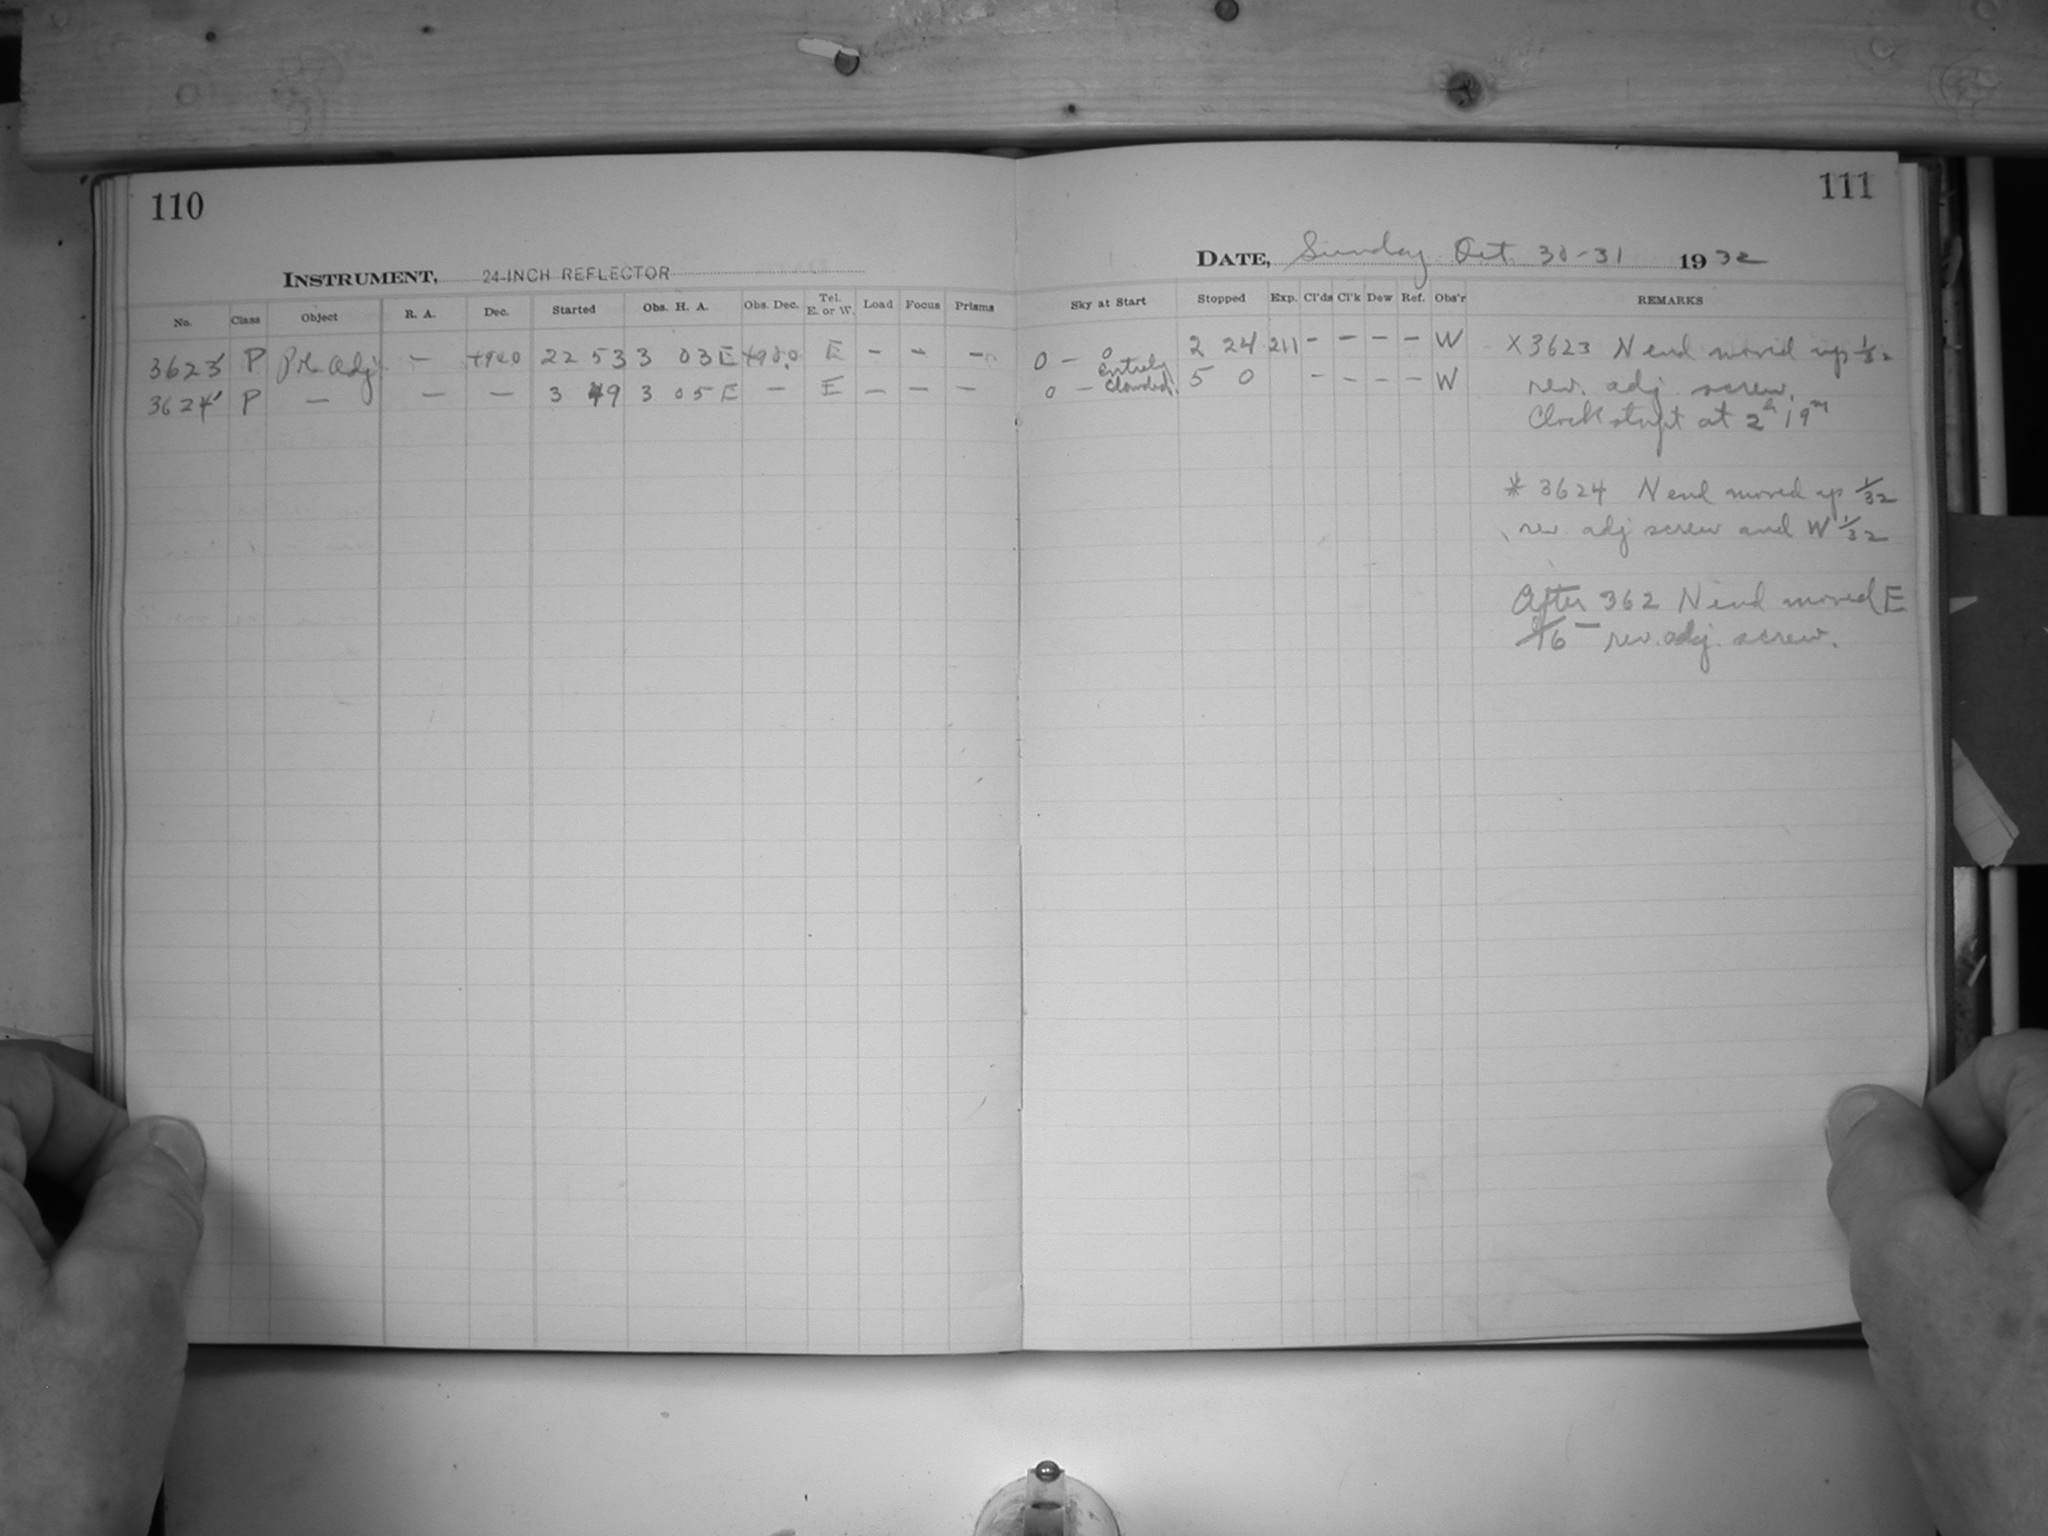 110
INSTRUMENT, 24-INCH REFLECTOR
No. Class Object R. A. Dec. Started Obs. H. A. Obs. Dec. Tel. E. or W. Load Focus Prisms
3623 P Adj — 22 53 3 03 E E — — —
3624 P — — — 3 49 3 05 E — E — — —
111
DATE, Sunday Oct. 30-31 1932
Sky at Start Stopped Exp. Cl'ds Cl'k Dew Ref. Obs'r REMARKS
0 — 0 2 24 211 — — — — W X 3623 N end moved up 1/32
0 — Entirely Clouded. 5 0 — — — — W rev. adj. screw.
Clock stopt at 2h 19m
* 3624 N end moved up 1/32
rev. adj screw and W 1/32
After 362 N end moved E
1/16 — rev. adj. screw.